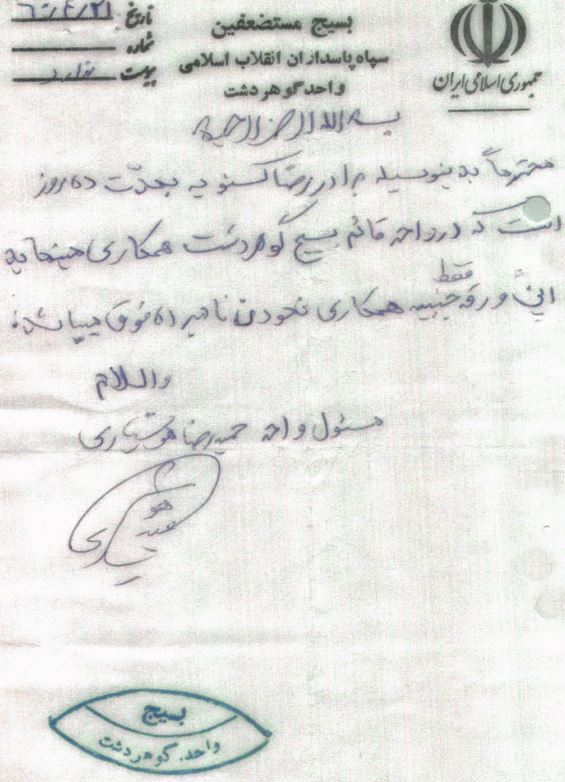 بسیج مستضعفین
سپاه پاسداران انقلاب اسلامی
واحد گوهردشت
جمهوری اسلامی ایران
تاریخ ۶۰/۴/۲۱
شماره
پیوست ندارد
بسم الله الرحمن الرحیم
محترماً بدینوسیله برادر رضا بمدّت ده روز
است که در واحد قائم بسیج گوهردشت همکاری مینماید
این ورقه فقط جنبه همکاری نمودن نامبرده فوق میباشد.
والسلام
مسئول واحد حمیدرضا هوشیاری
هوشیاری
بسیج
واحد گوهردشت